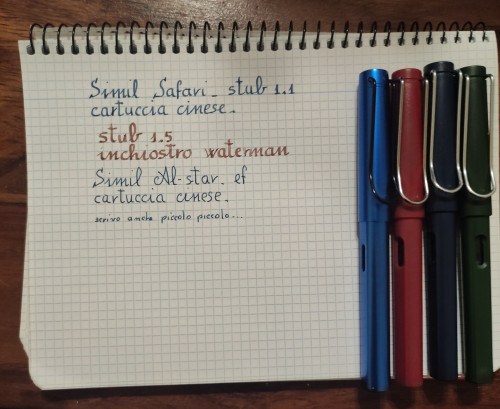 Simil Safari - stub 1.1
cartuccia cinese.
stub 1.5
inchiostro waterman
Simil Al-star. ef
cartuccia cinese.
scrivo anche piccolo piccolo...